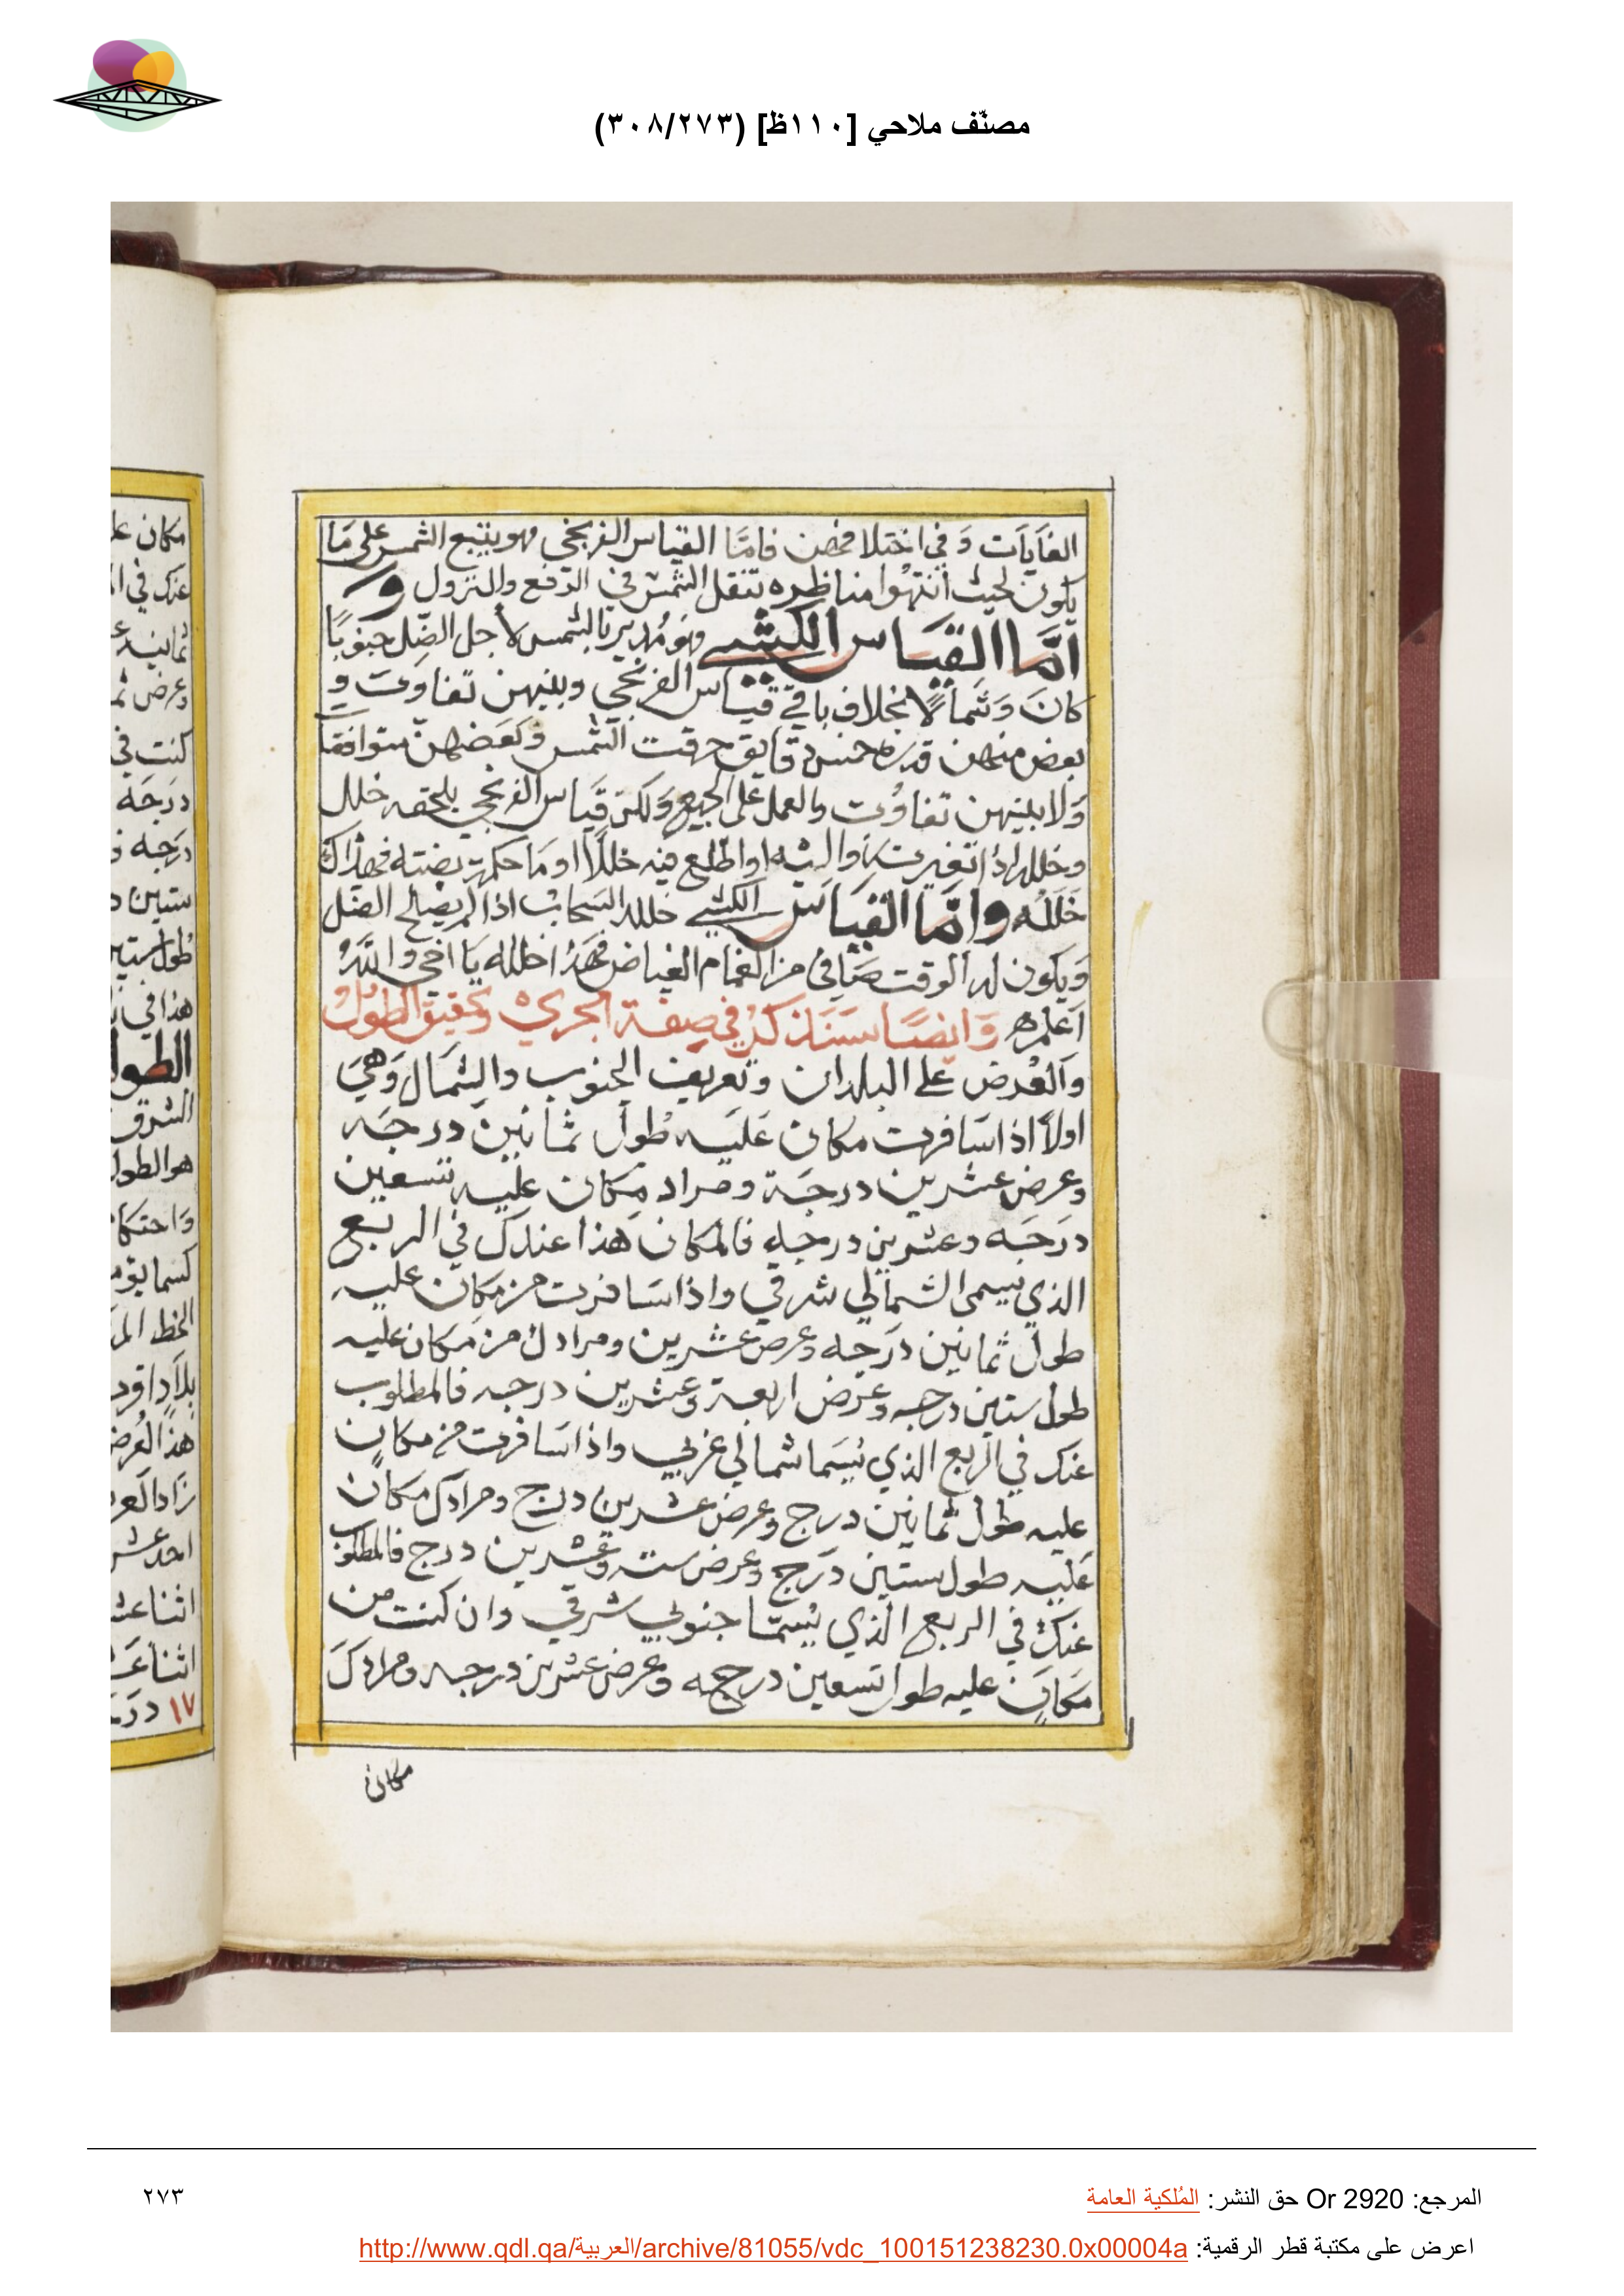 مصنّف ملاحي [١١٠ظ] (٣٠٨/٢٧٣)
الغايات وَفي اختلافهن فامّا القياس الفرنجي فهو يتبع الشمس على مَا
يكون لحيث انتهوا مناظره تنقل الشمس في الرفع والنزول و
امّا القيَاس الكشي وهَو مُدير بالشمس لاجل الضّل جنوبًا
كانَ وَشمالاً بخلاف باقي قيَاس الفرنجي وبينهن تفاوت و
بعض منهن قدره خمس دقايق حرقت الشمس وَبَعضهنّ متوافقا
وَلا بينهن تفاوُت والعمل على الجميع وَلكن قيَاس الفرنجي يلحقه خلل
وخلله اذا تغيرت او اطّلع فيه خللاً اومَا حكمت بضته فهذاك
خَلَلُه وامّا القيَاس الكشي خلله السَحاب اذا لم يصلح الضل
وَيكون له الوقت صَافي من الغمام الغياض فهَذا خلله يا اخي والله
اَعلم ه وَايضًا سَنَذكرُ في صِفة المجرى وتحقيق الطول
وَالعُرض على البلدان وتعريف الجنوب والشمَال وَهيَ
اولاً اذا سَافرت مكان عَليَه طُول ثمانين دَرجَه
وعرض عشرين درجَة ومراد مكان عليه تسعين
درَجَه وعشرين درجه فالمكان هَذا عندك في الربع
الذي يسمى الشمالي شرقي واذا سَافرت من مكان عليه
طول ثمانين درَجه وعرض عشرين ومرادك من مكان عليه
طول ستين درجه وعَرض اربعة وعشرين درجه فالمطلوب
عنك في الربع الذي يُسَما شمالي غربي واذا سَافرت من مكان
عليه طول ثمانين درج وعرض عشرين درج ومرادك مكان
عَليه طول ستين درَج وعرض ستة وعشرين درج فالمطلوب
عنك في الربع الذي يُسمّا جنوبي شرقي وان كنت من
مَكان عليه طول تسعين درجه وعرض عشرين درجه ومرادكَ
مكان
مكان عل
عنك في ا
ثمانيه عـ
وعرض ثم
كنت في
درَجَه
درَجه و
ستين د
طُول ستين
هذا في
الطول
الشرق
هو الطول
وَاحتكا
كسما
الخط الم
بلاَد
هذا العُرض
زاد العر
احد عشر
اثنا عشـ
اثنا عَشـ
١٧ درَجـ
المرجع: Or 2920 حق النشر: المُلكية العامة
٢٧٣
اعرض على مكتبة قطر الرقمية: http://www.qdl.qa/العربية/archive/81055/vdc_100151238230.0x00004a